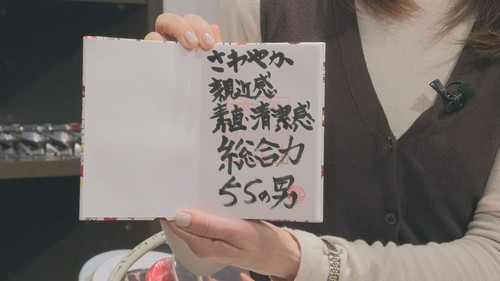 さわやか
親近感
素直・清潔感
総合力
55の男